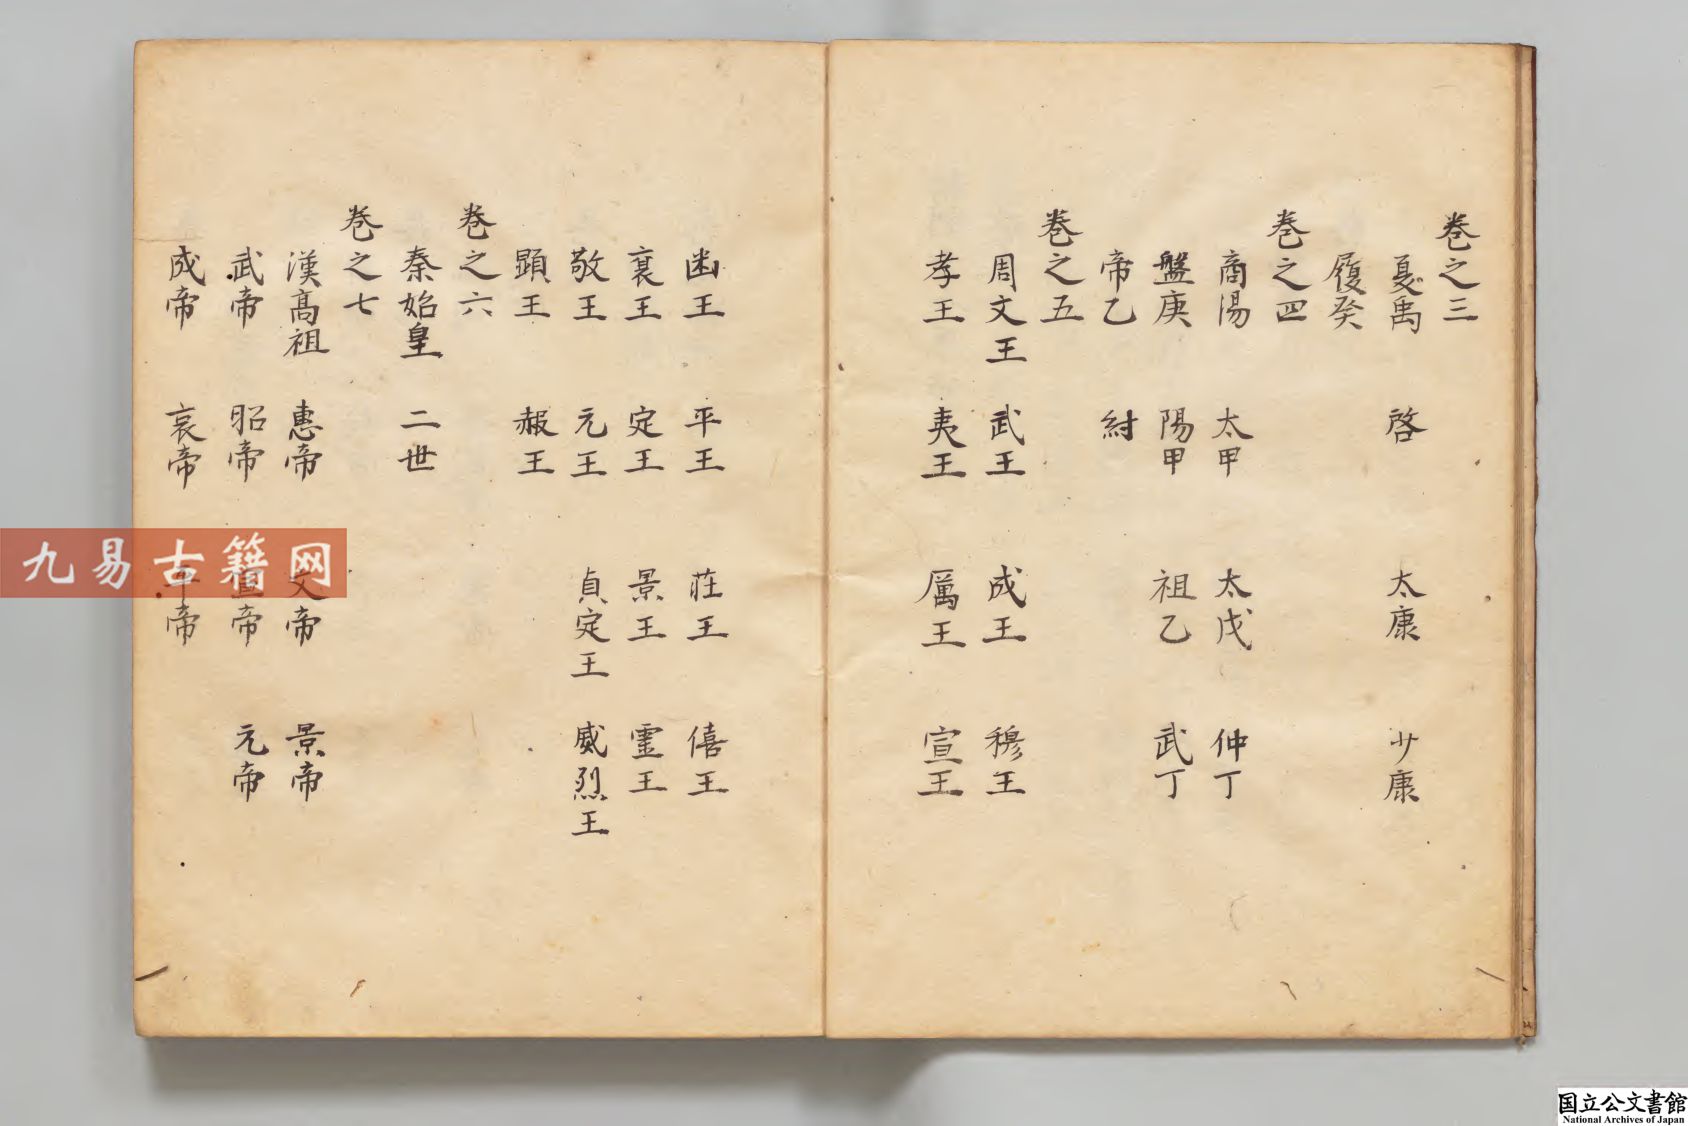 卷之三
夏禹 啓 太康 少康
履癸
卷之四
商湯 太甲 太戊 仲丁
盤庚 陽甲 祖乙 武丁
帝乙 紂
卷之五
周文王 武王 成王 穆王
孝王 夷王 厲王 宣王
幽王 平王 莊王 僖王
襄王 定王 景王 靈王
敬王 元王 貞定王 威烈王
顕王 赧王
卷之六
秦始皇 二世
卷之七
漢髙祖 惠帝 文帝 景帝
武帝 昭帝 宣帝 元帝
成帝 哀帝 平帝
九易古籍网
国立公文書館
National Archives of Japan